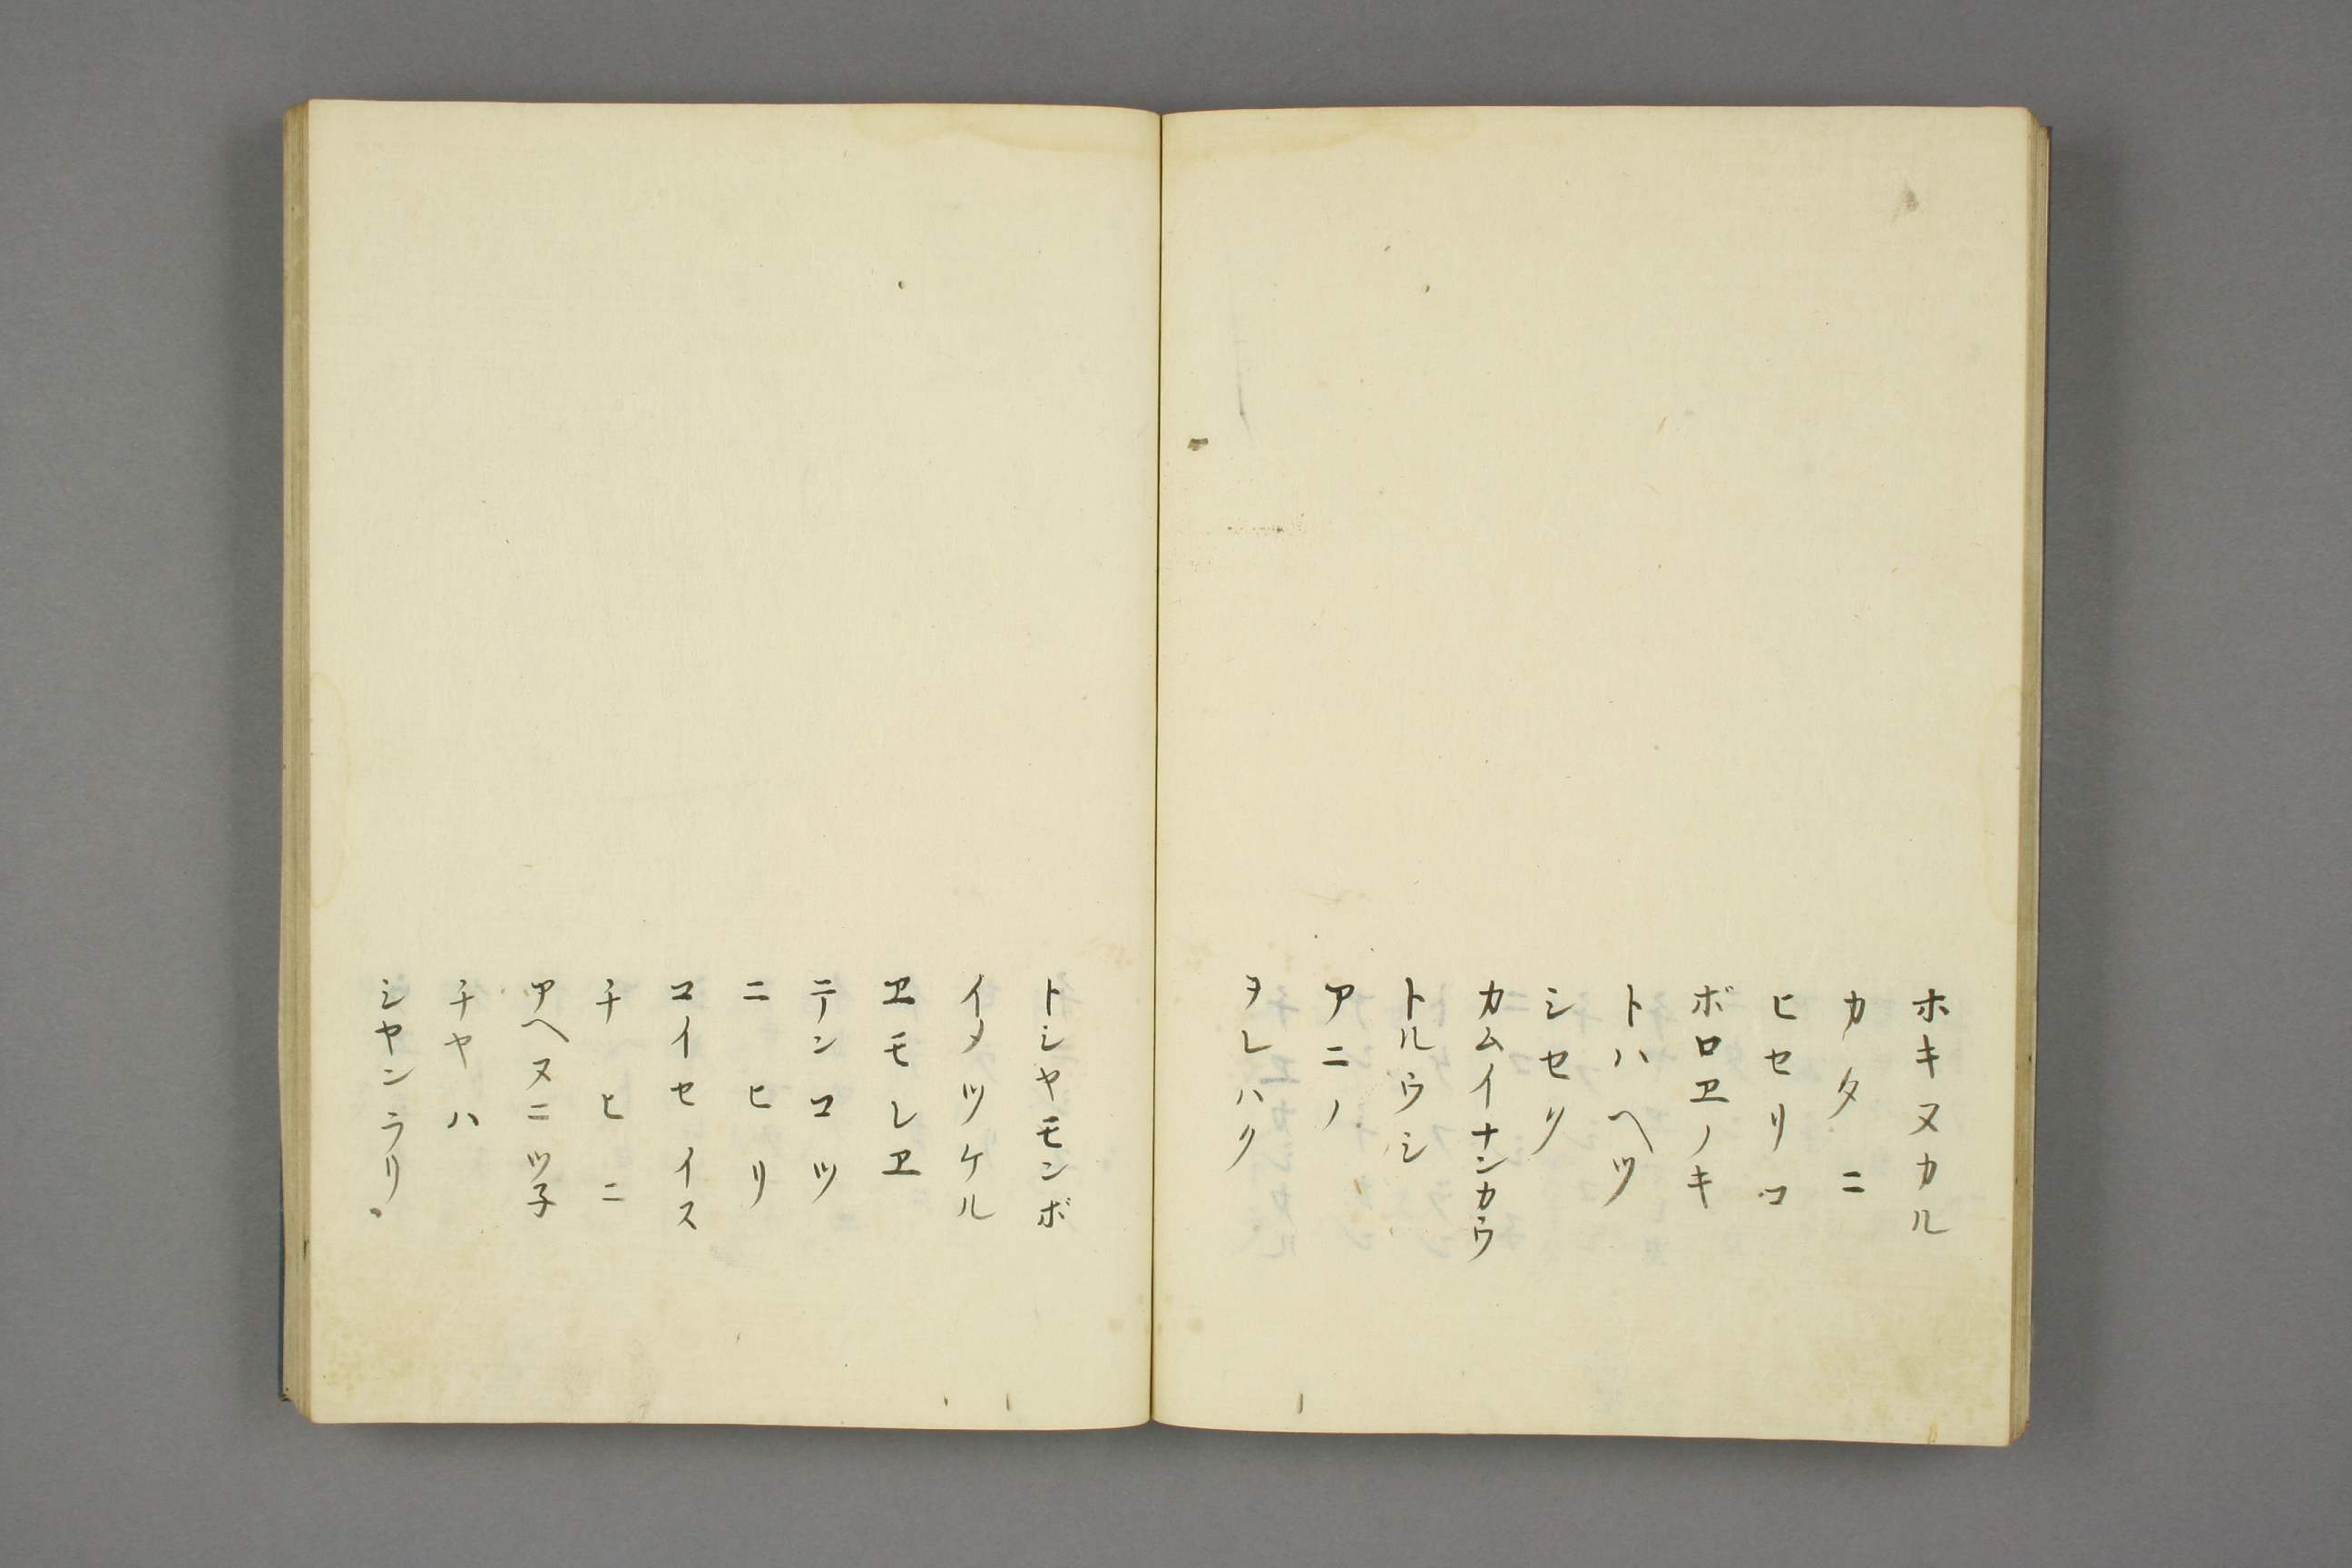 ホキヌカル
カタニ
ヒセリコ
ボロヱノキ
トハヘツ
シセリ
カムイナンカウ
トルウシ
アニノ
ヲレハク
トシヤモンボ
イメツケル
ヱモレヱ
テンコツ
ニヒリ
コイセイス
チヒニ
アヘヌニツ子
チヤハ
シヤンラリ